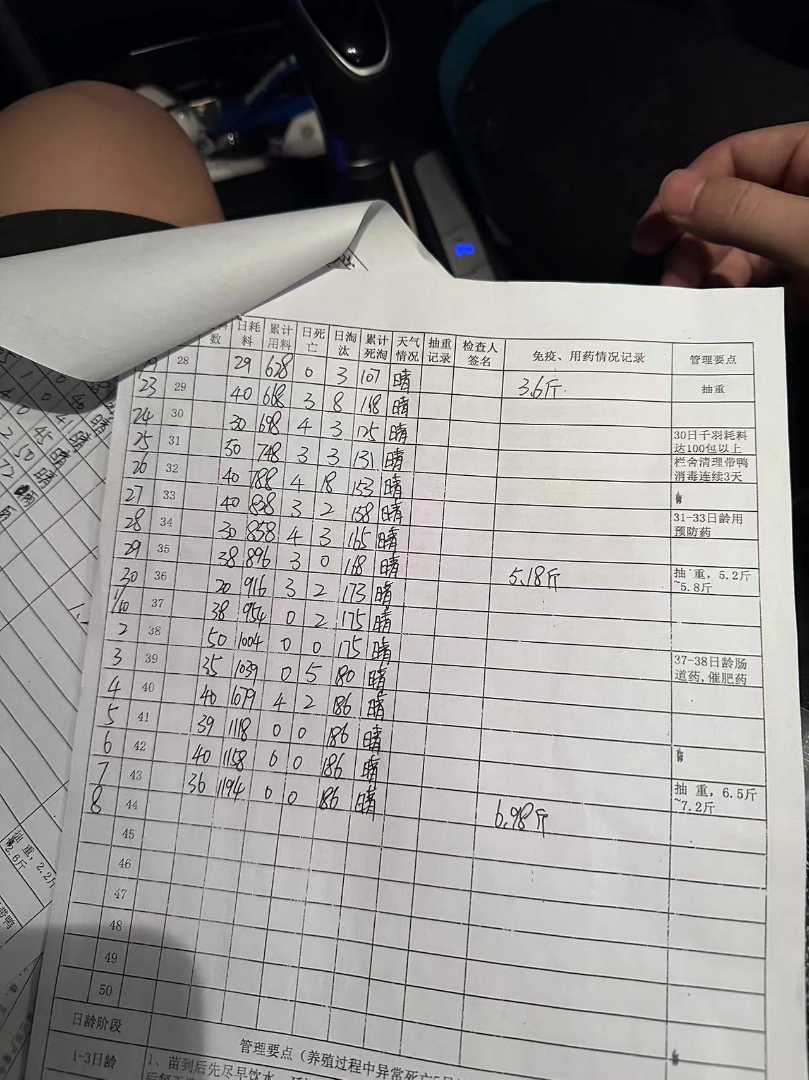 数 日耗料 累计用料 日死亡 日淘汰 累计死淘 天气情况 抽重记录 检查人签名 免疫、用药情况记录 管理要点
28 29 628 0 3 107 晴
23 29 40 668 3 8 118 晴 3.6斤 抽重
24 30 30 698 4 3 125 晴
25 31 50 748 3 3 131 晴 30日千羽耗料达100包以上
26 32 40 788 4 18 153 晴 栏舍清理带鸭消毒连续3天
27 33 40 828 3 2 158 晴
28 34 30 858 4 3 165 晴 31-33日龄用预防药
29 35 38 896 3 0 168 晴
30 36 20 916 3 2 173 晴 5.18斤 抽重，5.2斤~5.8斤
1/10 37 38 954 0 2 175 晴
2 38 50 1004 0 0 175 晴
3 39 35 1039 0 5 180 晴 37-38日龄肠道药,催肥药
4 40 40 1079 4 2 186 晴
5 41 39 1118 0 0 186 晴
6 42 40 1158 0 0 186 晴
7 43 36 1194 0 0 186 晴
8 44 6.98斤 抽重，6.5斤~7.2斤
45
46
47
48
49
50
日龄阶段 管理要点（养殖过程中异常死亡5
1-3日龄 1、苗到后先尽早饮水